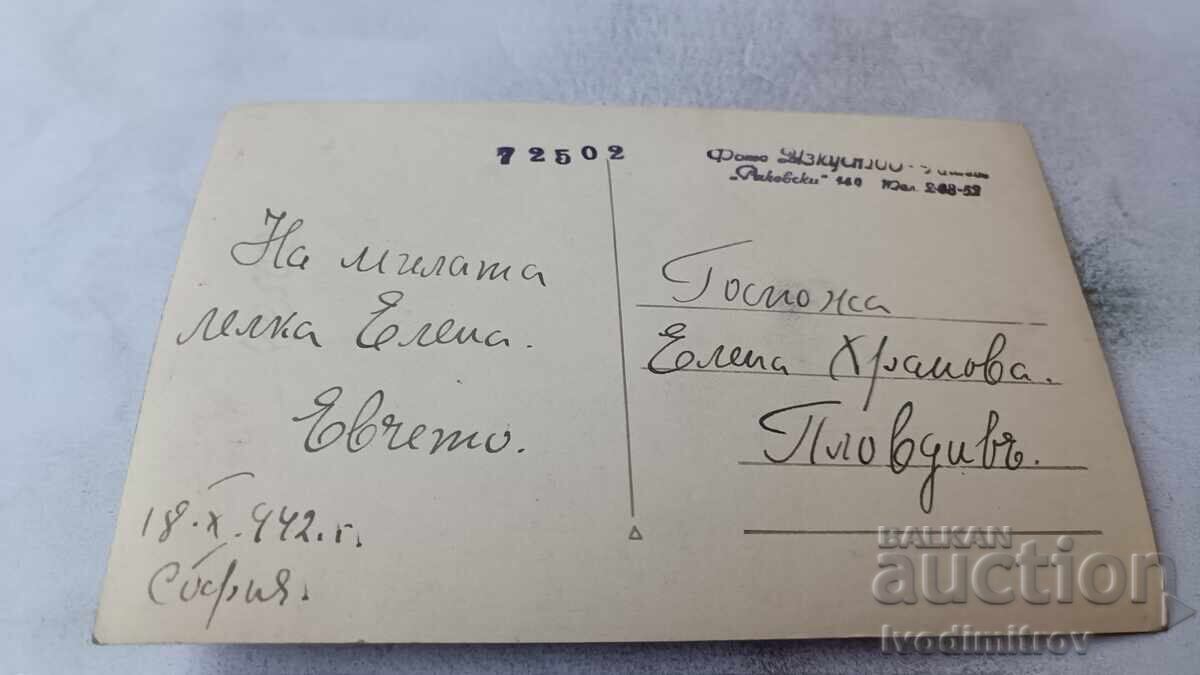 72502
Фото Изкуство-
"Раковски" 140 Тел. 2-88-52
На милата
лелка Елена.
Евчето.
18.X.942.г.
София.
Госпожа
Елена Храмова.
Пловдивъ.
BALKAN
auction
Ivodimitrov